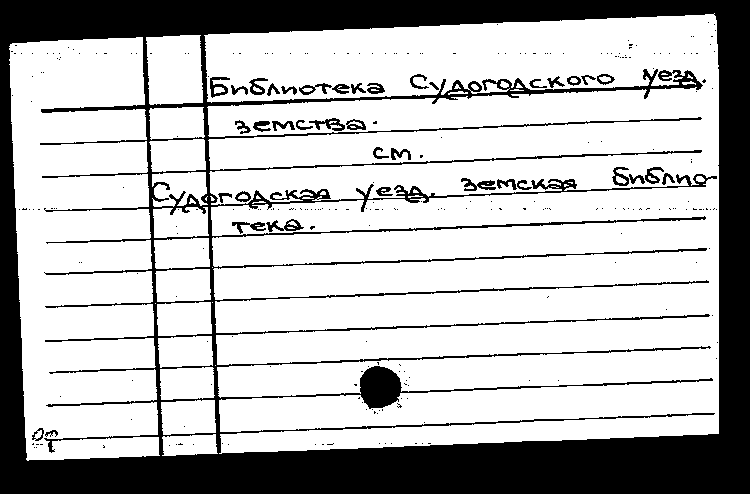 Библиотека Судогодского уезд.
земства.
см.
Судогодская уезд. земская библио-
тека.